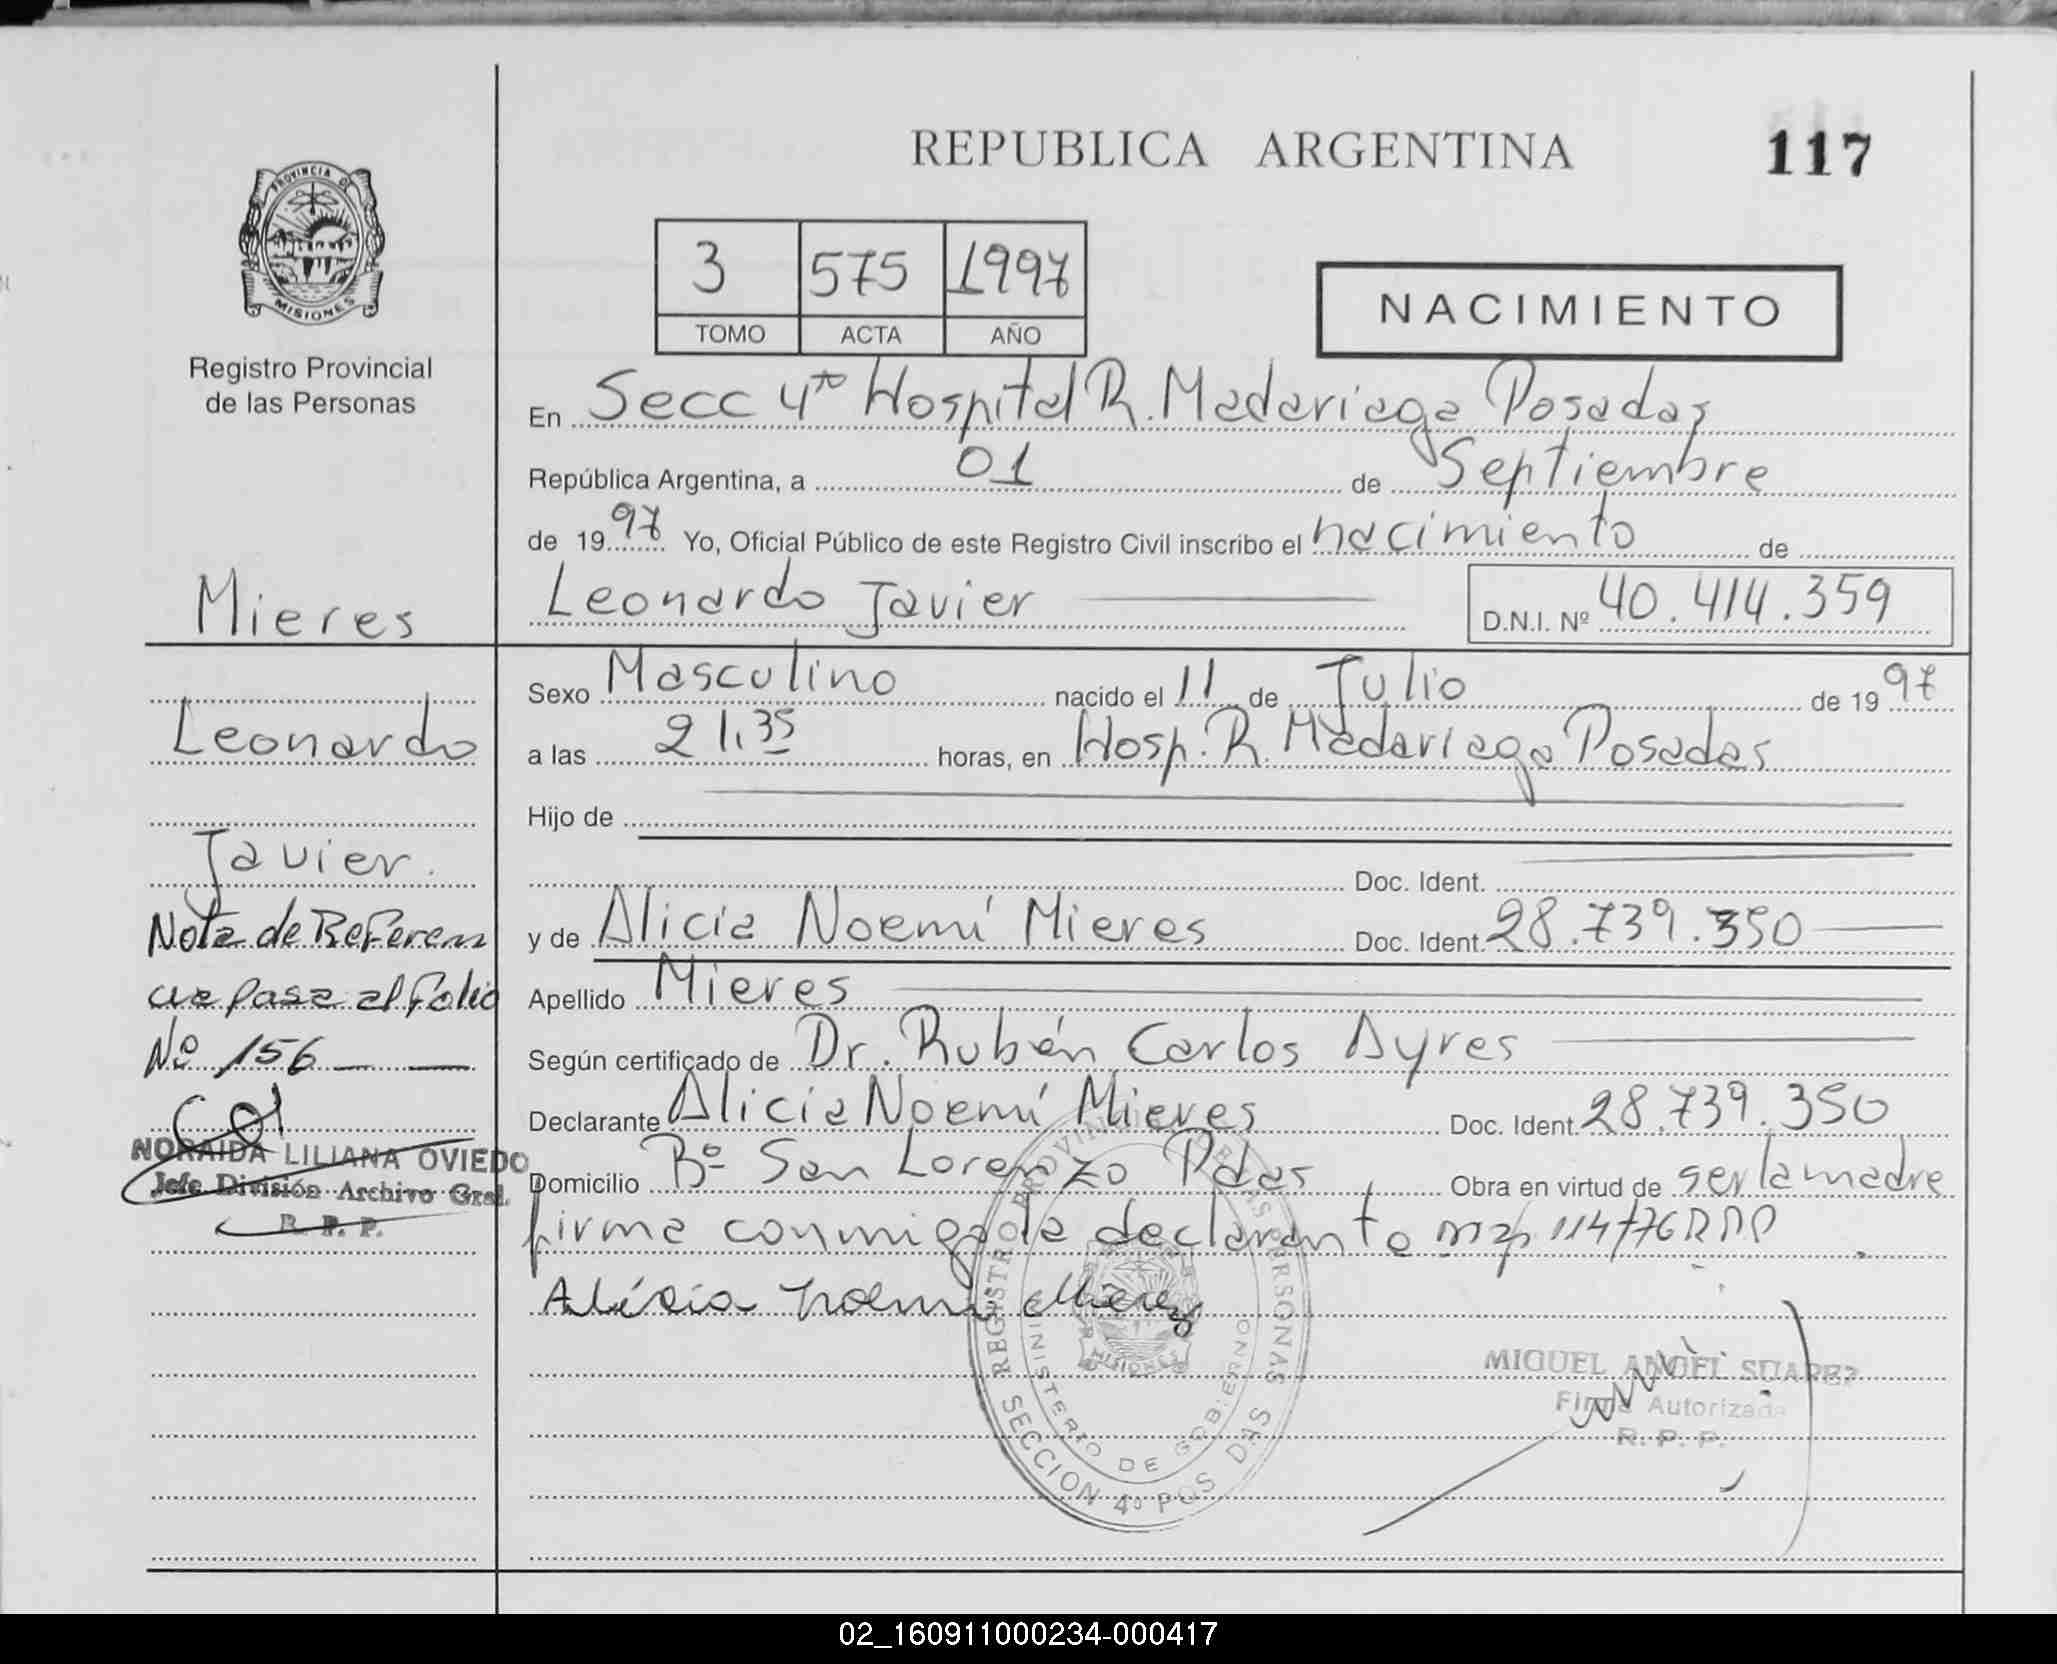 REPUBLICA ARGENTINA
117
PROVINCIA DE
MISIONES
Registro Provincial
de las Personas
3 575 1997
TOMO ACTA AÑO
NACIMIENTO
En Secc 4ta Hospital R. Madariaga Posadas
República Argentina, a 01 de Septiembre
de 1997 Yo, Oficial Público de este Registro Civil inscribo el nacimiento de
Leonardo Javier
D.N.I. Nº 40.414.359
Sexo Masculino nacido el 11 de Julio de 1997
a las 21,35 horas, en Hosp. R. Madariaga Posadas
Hijo de
Doc. Ident.
y de Alicia Noemí Mieres Doc. Ident. 28.739.350
Apellido Mieres
Según certificado de Dr. Rubén Carlos Ayres
Declarante Alicia Noemí Mieres Doc. Ident. 28.739.350
Domicilio Bº San Lorenzo Pdas Obra en virtud de ser la madre
firma conmigo la declarante 114/76 RPP
Alicia Noemi Mierez
Mieres
Leonardo
Javier.
Nota de Referen
cia pasa al folio
Nº 156
NORAIDA LILIANA OVIEDO
Jefe División Archivo Gral.
R. P. P.
REGISTRO PROVINCIAL DE LAS PERSONAS
MINISTERIO DE GOBIERNO
MISIONES
SECCION 4º POSADAS
MIGUEL ANGEL SUAREZ
Firma Autorizada
R. P. P.
02_160911000234-000417